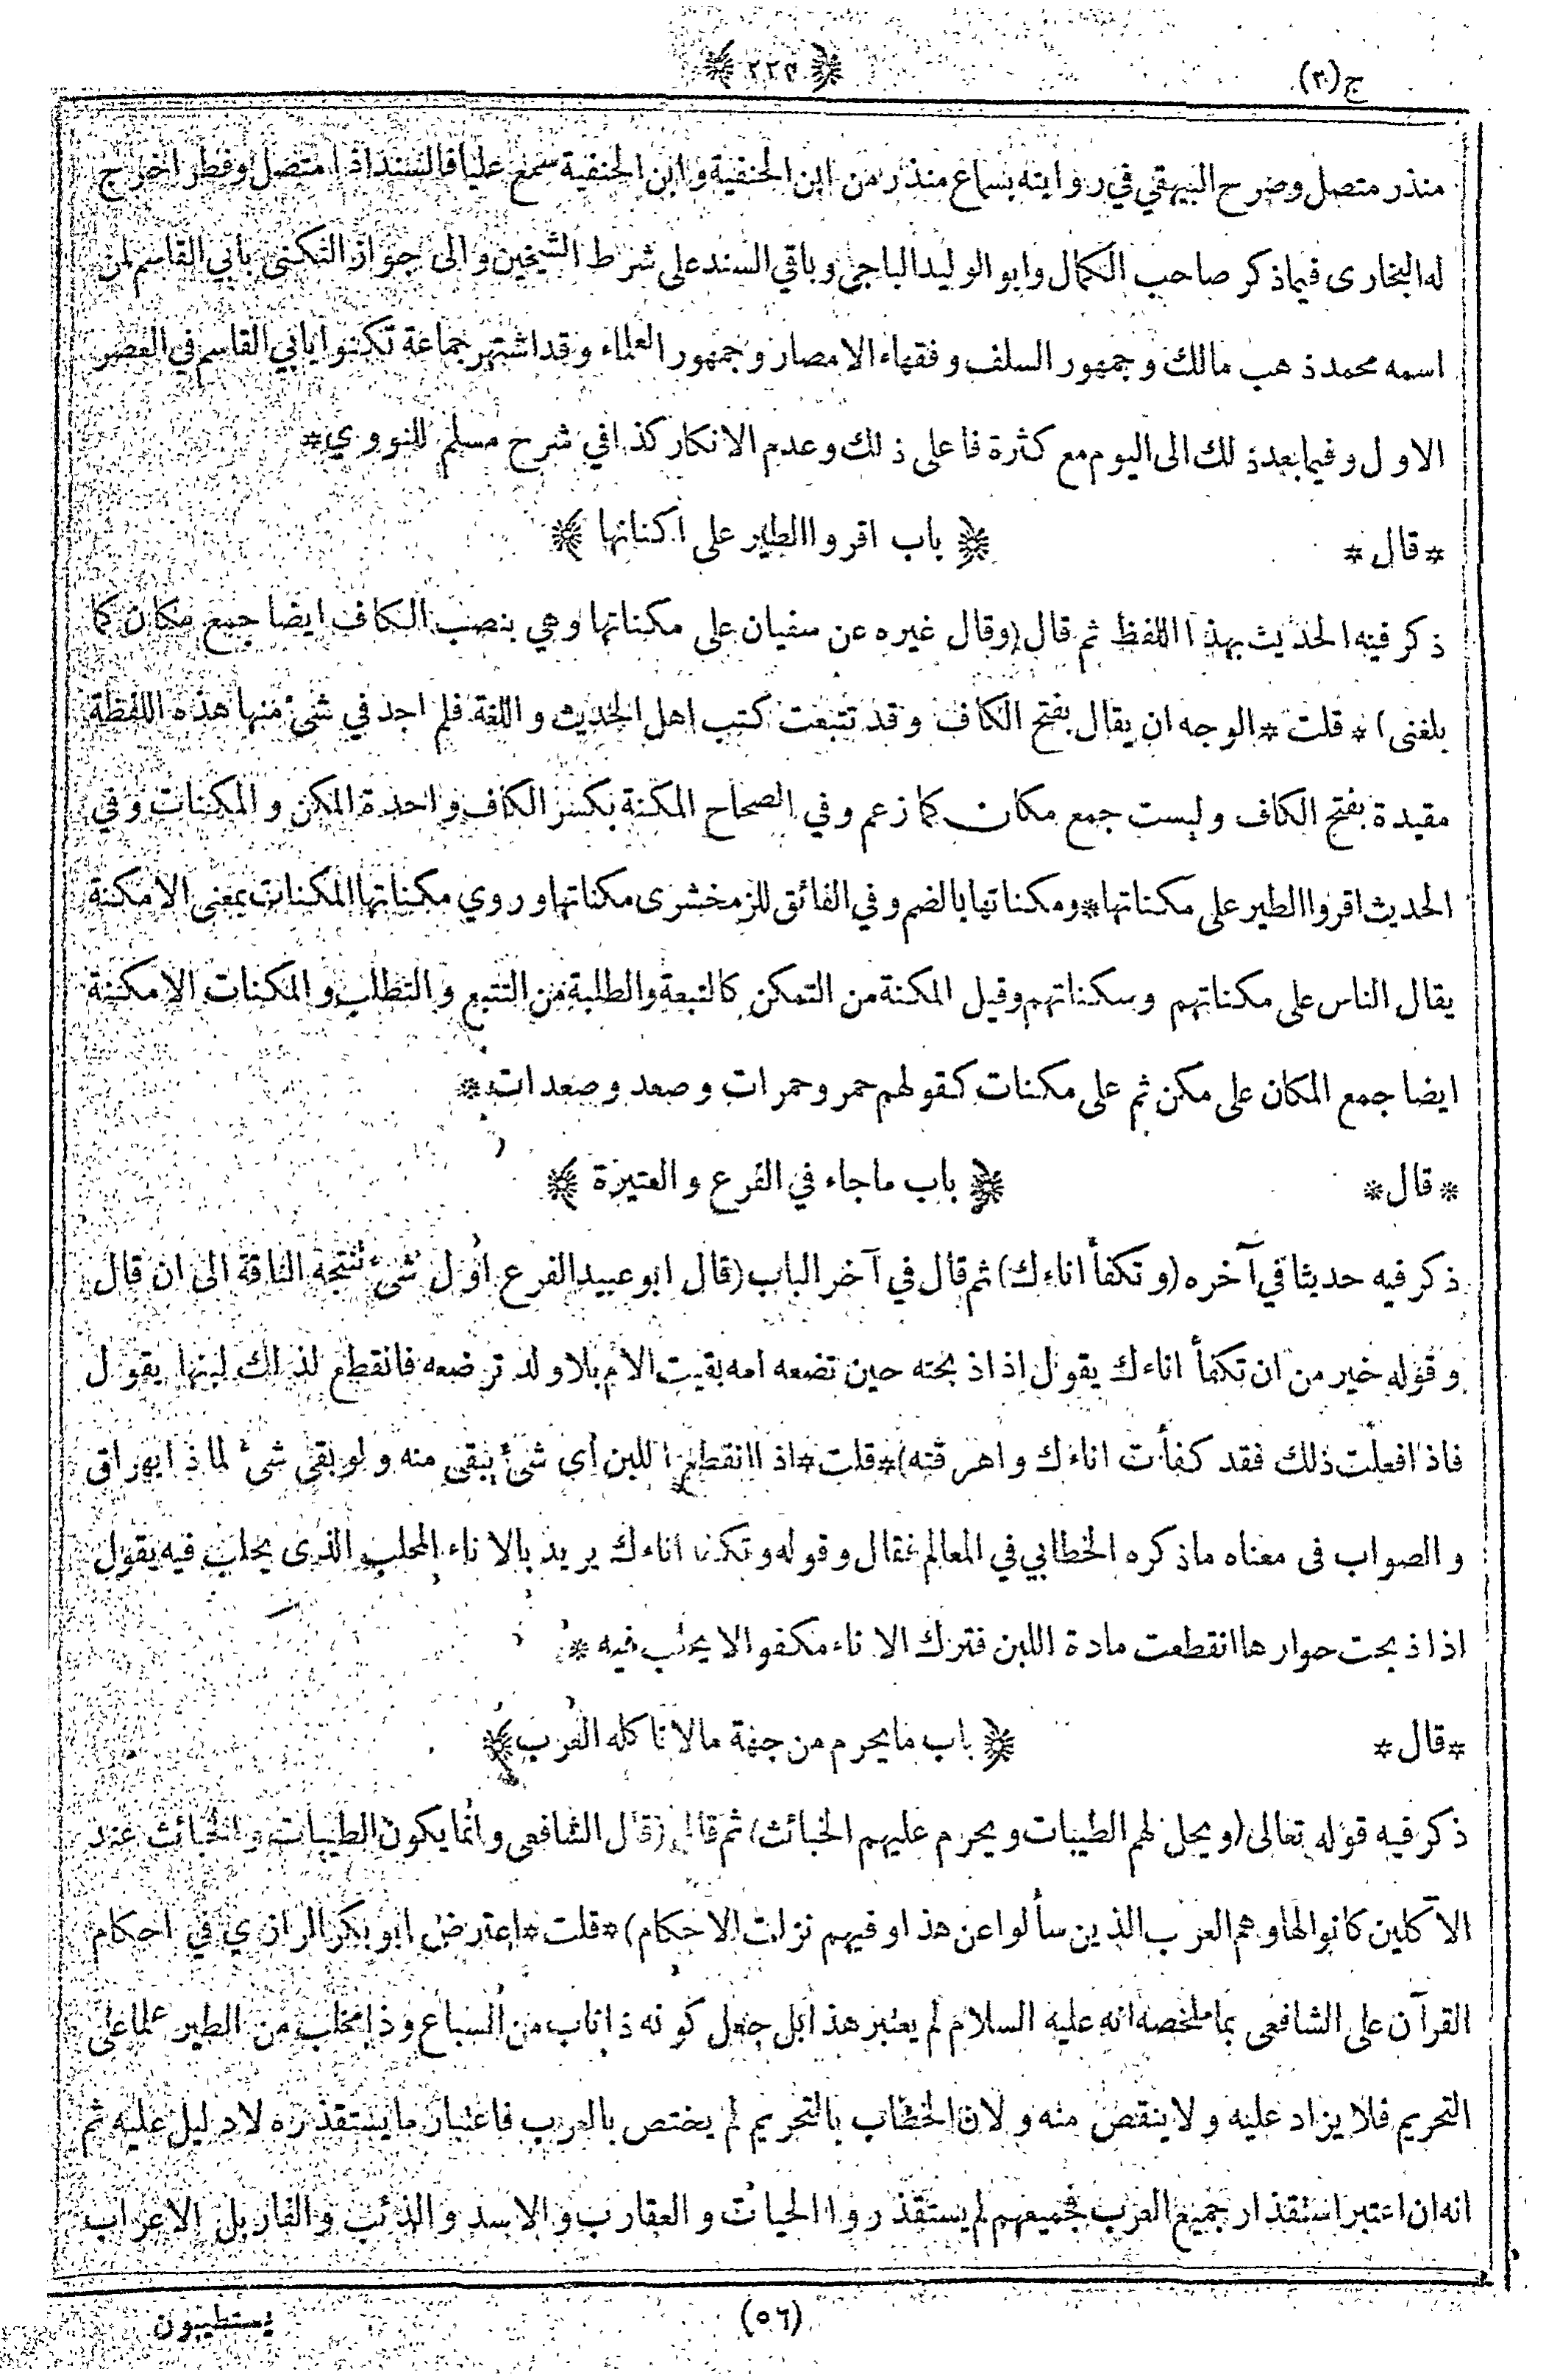 ج (٢)
منذر متصل وصرح البيهقي في روايته بسماع منذر من ابن الحنفية وابن الحنفية سمع عليا فالسند اذا متصل وفطر اخرج
له البخارى فيما ذكر صاحب الكمال وابو الوليد الباجي وباقي السند على شرط الشيخين والى جواز التكنى بابي القاسم لمن
اسمه محمد ذهب مالك وجمهور السلف وفقهاء الامصار وجمهور العلماء وقد اشتهر جماعة تكنوا بابي القاسم في العصر
الاول وفيما بعد ذلك الى اليوم مع كثرة فاعلى ذلك وعدم الانكار كذا في شرح مسلم للنووي *
* قال * ﴿ باب اقروا الطير على اكنانها ﴾
ذكر فيه الحديث بهذا اللفظ ثم قال (وقال غيره عن سفيان على مكناتها وهي بنصب الكاف ايضا جمع مكان كما
بلغنى) * قلت * الوجه ان يقال بفتح الكاف وقد تتبعت كتب اهل الحديث و اللغة فلم اجد في شئ منها هذه اللفظة
مقيدة بفتح الكاف وليست جمع مكان كما زعم وفي الصحاح المكنة بكسر الكاف واحدة المكن و المكنات وفي
الحديث اقروا الطير على مكناتها * ومكناتها بالضم وفي الفائق للزمخشرى مكناتها وروي مكناتها المكنات بمعنى الامكنة
يقال الناس على مكناتهم وسكناتهم وقيل المكنة من التمكن كالتبعة والطلبة من التتبع والتطلب و المكنات الامكنة
ايضا جمع المكان على مكن ثم على مكنات كقولهم حمر وحمرات وصعد وصعدات *
* قال * ﴿ باب ما جاء في الفرع والعتيرة ﴾
ذكر فيه حديثا في آخره (وتكفأ اناءك) ثم قال في آخر الباب (قال ابو عبيد الفرع اول شئ تنتجه الناقة الى ان قال
وقوله خير من ان تكفأ اناءك يقول اذا ذبحته حين تضعه امه بقيت الام بلا ولد ترضعه فانقطع لذلك لبنها يقول
فاذا فعلت ذلك فقد كفأت اناءك واهرقته) * قلت * اذا انقطع اللبن اى شئ يبقى منه ولو بقى شئ لماذا يهراق
والصواب فى معناه ما ذكره الخطابي في المعالم فقال وقوله وتكفأ اناءك يريد بالاناء المحلب الذى يحلب فيه يقول
اذا ذبحت حوارها انقطعت مادة اللبن فتترك الاناء مكفوا لا يحلب فيه *
* قال * ﴿ باب ما يحرم من جهة مالا تاكله العرب ﴾
ذكر فيه قوله تعالى (ويحل لهم الطيبات ويحرم عليهم الخبائث) ثم قال (قال الشافعى وانما يكون الطيبات والخبائث عند
الآكلين كانوا لها وهم العرب الذين سألوا عن هذا وفيهم نزلت الاحكام) * قلت * اعترض ابو بكر الرازي في احكام
القرآن على الشافعى بما ملخصه انه عليه السلام لم يعتبر هذا بل جعل كونه ذا ناب من السباع وذا مخلب من الطير علما على
التحريم فلا يزاد عليه ولا ينقص منه ولان الخطاب بالتحريم لم يختص بالعرب فاعتبار ما يستقذره لا دليل عليه ثم
انه ان اعتبر استقذار جميع العرب فجميعهم لم يستقذروا الحيات والعقارب والاسد والذئب والفار بل الاعراب
(٥٦)
يستطيبون